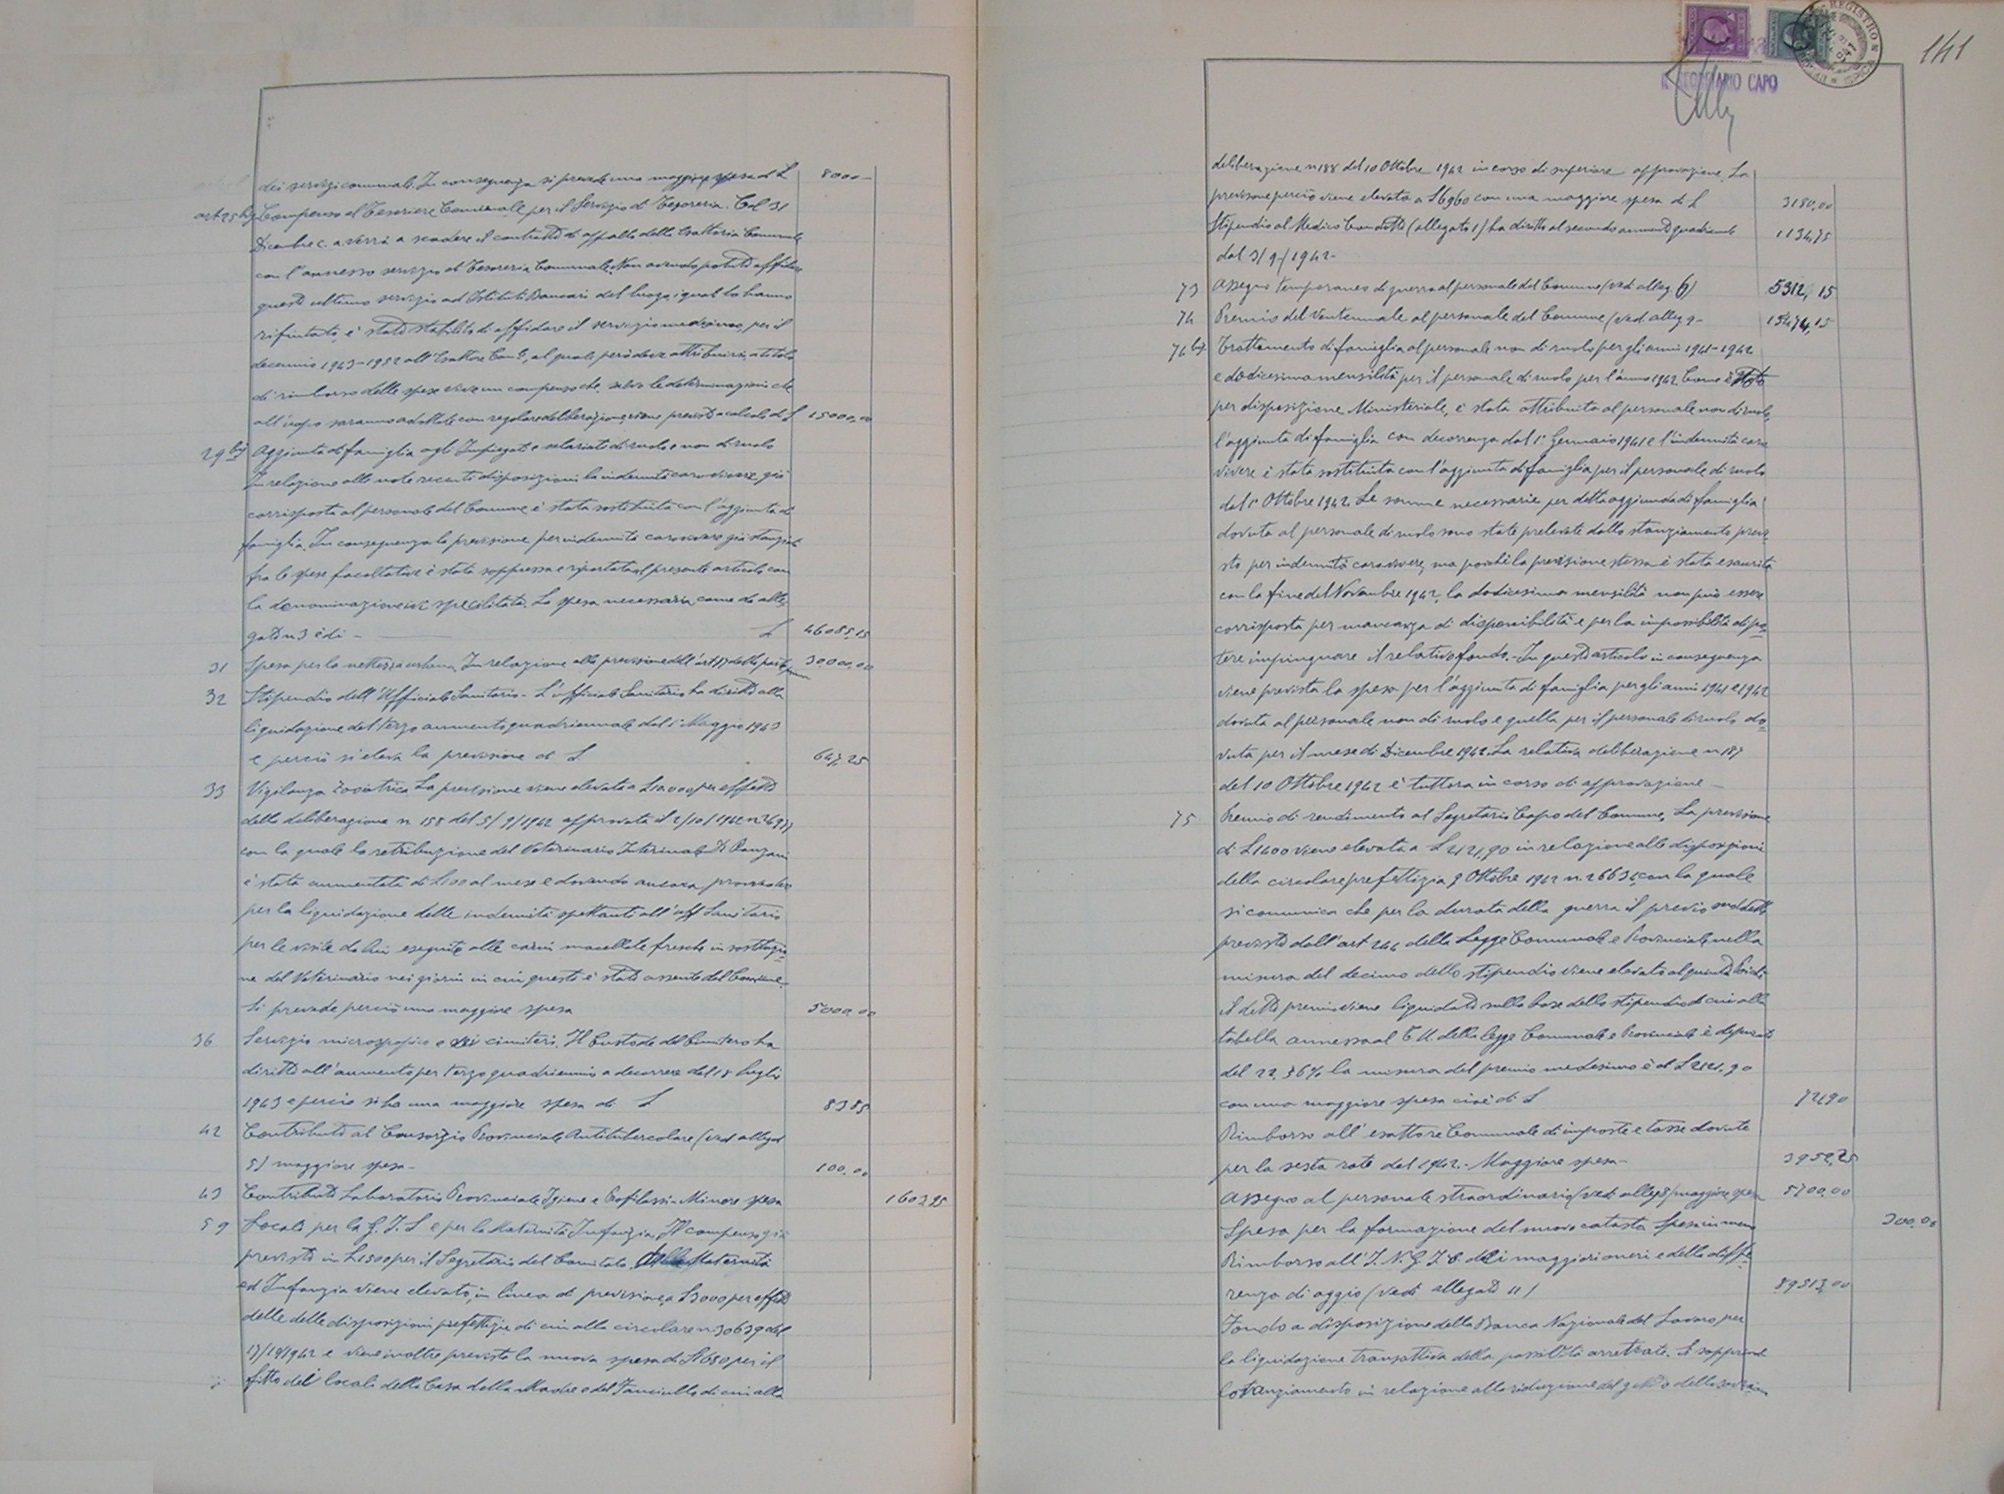 dei servizi comunali. In conseguenza si prevede una maggiore spesa di L 8000 -
art 25 bis Compenso al Tesoriere Comunale per il Servizio di Tesoreria. Col 31
Dicembre c. a verrà a scadere il contratto di appalto della Esattoria Comunale
con l'annesso servizio di Tesoreria Comunale. Non avendo potuto affidare
questo ultimo servizio ad Istituti Bancari del luogo, i quali lo hanno
rifiutato, è stato stabilito di affidare il servizio medesimo per il
decennio 1943-1952 all'Esattore Com. al quale però deve attribuirsi a titolo
di rimborso delle spese vive un compenso che, salvo le determinazioni che
all'uopo saranno adottate con regolare deliberazione, viene previsto a calcolo di L 15000,00
29 bis Aggiunta di famiglia agli Impiegati e salariati di ruolo e non di ruolo
In relazione alle note recenti disposizioni la indennità caro viveri già
corrisposta al personale del Comune è stata sostituita con l'aggiunta di
famiglia. In conseguenza la previsione per indennità caroviveri già stanziata
fra le spese facoltative è stata soppressa e riportata al presente articolo con
la denominazione ivi specificata. La spesa necessaria come da alle-
gato n 3 è di - L 46085,15
31 Spesa per la nettezza urbana. In relazione alla previsione dell'art 17 della parte 30000,00
32 Stipendio dell'Ufficiale Sanitario - L'ufficiale Sanitario ha diritto alla
liquidazione del terzo aumento quadriennale dal 1° Maggio 1943
e perciò si eleva la previsione di L 647,25
33 Vigilanza Zooiatrica La previsione viene elevata a L 10.000 per effetto
della deliberazione n 158 del 5/9/1942 approvata il 2/10/1942
con la quale la retribuzione del Veterinario Interinale
è stata aumentata di L 100 al mese e dovendo ancora provvedere
per la liquidazione delle indennità spettanti all'uff Sanitario
per le visite da lui eseguite alle carni macellate fresche in sostituzio-
ne del Veterinario nei giorni in cui questi è stato assente dal Comune.
Si prevede perciò una maggiore spesa 5000,00
36 Servizio microscopico e dei cimiteri. Il Custode del Cimitero ha
diritto all'aumento per terzo quadriennio a decorrere dal 18 luglio
1943 e perciò si ha una maggiore spesa di L 83,85
42 Contributo al Consorzio Provinciale Antitubercolare (ved allegato
5) maggiore spesa - 100,00
43 Contributo Laboratorio Provinciale Igiene e Profilassi - Minore spesa 1603,95
59 Locali per la G. I. L e per la Maternità Infanzia. Il compenso già
previsto in L 1500 per il Segretario del Comitato della Maternità
ed Infanzia viene elevato, in linea di previsione, a L 3000 per effetto
delle disposizioni prefettizie di cui alla circolare n 30639 del
e viene inoltre prevista la nuova spesa di L 1680 per il
fitto dei locali della Casa della Madre e del Fanciullo di cui alla
141
IL SEGRETARIO CAPO
deliberazione n 188 del 10 Ottobre 1942 in corso di superiore approvazione. La
previsione perciò viene elevata a L 6960 con una maggiore spesa di L 3180,00
Stipendio al Medico Condotto (allegato 1) ha diritto al secondo aumento quadriennale 1134,75
dal 3/9/1942 -
73 Assegno temporaneo di guerra al personale del Comune (vedi alleg. 6) 5312,15
74 Premio del Ventennale al personale del Comune (ved. alleg 9 - 15474,15
74 bis Trattamento di famiglia al personale non di ruolo per gli anni 1941-1942
e dodicesima mensilità per il personale di ruolo per l'anno 1942. Come è noto
per disposizione Ministeriale, è stata attribuita al personale non di ruolo,
l'aggiunta di famiglia con decorrenza dal 1° Gennaio 1941 e l'indennità caro
vivere è stata sostituita con l'aggiunta di famiglia per il personale di ruolo
dal 1° Ottobre 1942. Le somme necessarie per detta aggiunta di famiglia
dovuta al personale di ruolo sono state prelevate dallo stanziamento previ-
sto per indennità caroviveri, ma poichè la previsione stessa è stata esaurita
con la fine del Novembre 1942, la dodicesima mensilità non può essere
corrisposta per mancanza di disponibilità e per la impossibilità di po-
tere impinguare il relativo fondo. - In questo articolo in conseguenza
viene prevista la spesa per l'aggiunta di famiglia per gli anni 1941 e 1942
dovuta al personale non di ruolo e quella per il personale di ruolo do-
vuta per il mese di Dicembre 1942. La relativa deliberazione n 187
del 10 Ottobre 1942 è tuttora in corso di approvazione -
75 Premio di rendimento al Segretario Capo del Comune. La previsione
di L 1400 viene elevata a L 2121,90 in relazione alle disposizioni
della circolare prefettizia 9 Ottobre 1942 n. 26634, con la quale
si comunica che per la durata della guerra il premio suddetto
previsto dall'art 244 della Legge Comunale e Provinciale nella
misura del decimo dello stipendio viene elevato al quinto. Poichè
il detto premio viene liquidato sulla base dello stipendio di cui alla
tabella annessa al T. U. della legge Comunale e Provinciale e depurato
del 22,36% la misura del premio medesimo è di L 2121,90
con una maggiore spesa cioè di L 721,90
Rimborso all'esattore Comunale di imposte e tasse dovute
per la sesta rata del 1942. - Maggiore spesa - 3952,25
Assegno al personale straordinario (vedi alleg 8) maggiore spesa 5700,00
Spesa per la formazione del nuovo catasto. Spesa in meno 300,00
Rimborso all'I. N. G. I. C. dei maggiori oneri e della diffe-
renza di aggio (vedi allegato 11) 89513,00
Fondo a disposizione della Banca Nazionale del Lavoro per
la liquidazione transattiva della passività arretrate. Si sopprime
lo stanziamento in relazione alla riduzione del